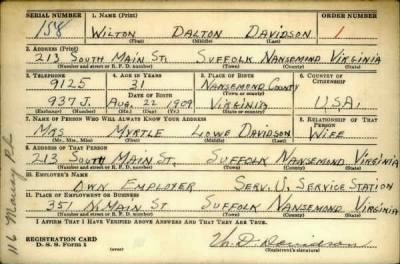 SERIAL NUMBER 1. NAME (Print) ORDER NUMBER
158 WILTON DALTON DAVIDSON 1
(First) (Middle) (Last)
2. ADDRESS (Print)
213 SOUTH MAIN ST. SUFFOLK NANSEMOND VIRGINIA
(Number and street or R. F. D. number) (Town) (County) (State)
3. TELEPHONE 4. AGE IN YEARS 5. PLACE OF BIRTH 6. COUNTRY OF CITIZENSHIP
9125 31 NANSEMOND COUNTY
DATE OF BIRTH (Town or county)
937J. AUG. 22 1909 VIRGINIA U.S.A.
(Exchange) (Number) (Mo.) (Day) (Yr.) (State or country)
7. NAME OF PERSON WHO WILL ALWAYS KNOW YOUR ADDRESS 8. RELATIONSHIP OF THAT PERSON
MRS MYRTLE LOWE DAVIDSON WIFE
(Mr., Mrs., Miss) (First) (Middle) (Last)
9. ADDRESS OF THAT PERSON
213 SOUTH MAIN ST. SUFFOLK NANSEMOND VIRGINIA
(Number and street or R. F. D. number) (Town) (County) (State)
10. EMPLOYER'S NAME
OWN EMPLOYER SERV. U. SERVICE STATION
11. PLACE OF EMPLOYMENT OR BUSINESS
351 N. MAIN ST SUFFOLK NANSEMOND VIRGINIA
(Number and street or R. F. D. number) (Town) (County) (State)
I AFFIRM THAT I HAVE VERIFIED ABOVE ANSWERS AND THAT THEY ARE TRUE.
REGISTRATION CARD W. D. Davidson
D. S. S. Form 1 (over) (Registrant's signature)
116 Pl